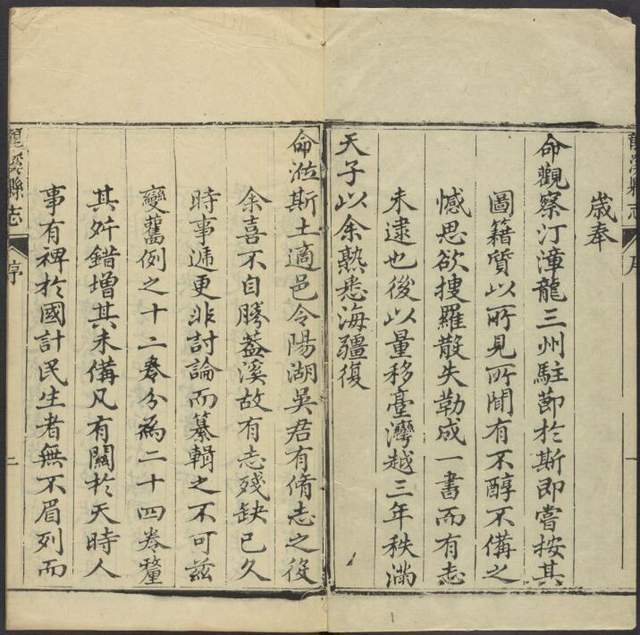 歲奉
命觀察汀漳龍三州駐節於斯即嘗按其
圖籍質以所見所聞有不醇不備之
憾思欲搜羅散失勒成一書而有志
未逮也後以量移臺灣越三年秩滿
天子以余熟悉海疆復
命涖斯土適邑令陽湖吳君有脩志之役
余喜不自勝葢溪故有志殘缺已久
時事遞更非討論而纂輯之不可茲
變舊例之十二卷分為二十四卷釐
其舛錯增其未備凡有關於天時人
事有裨於國計民生者無不眉列而
龍溪縣志
序
二